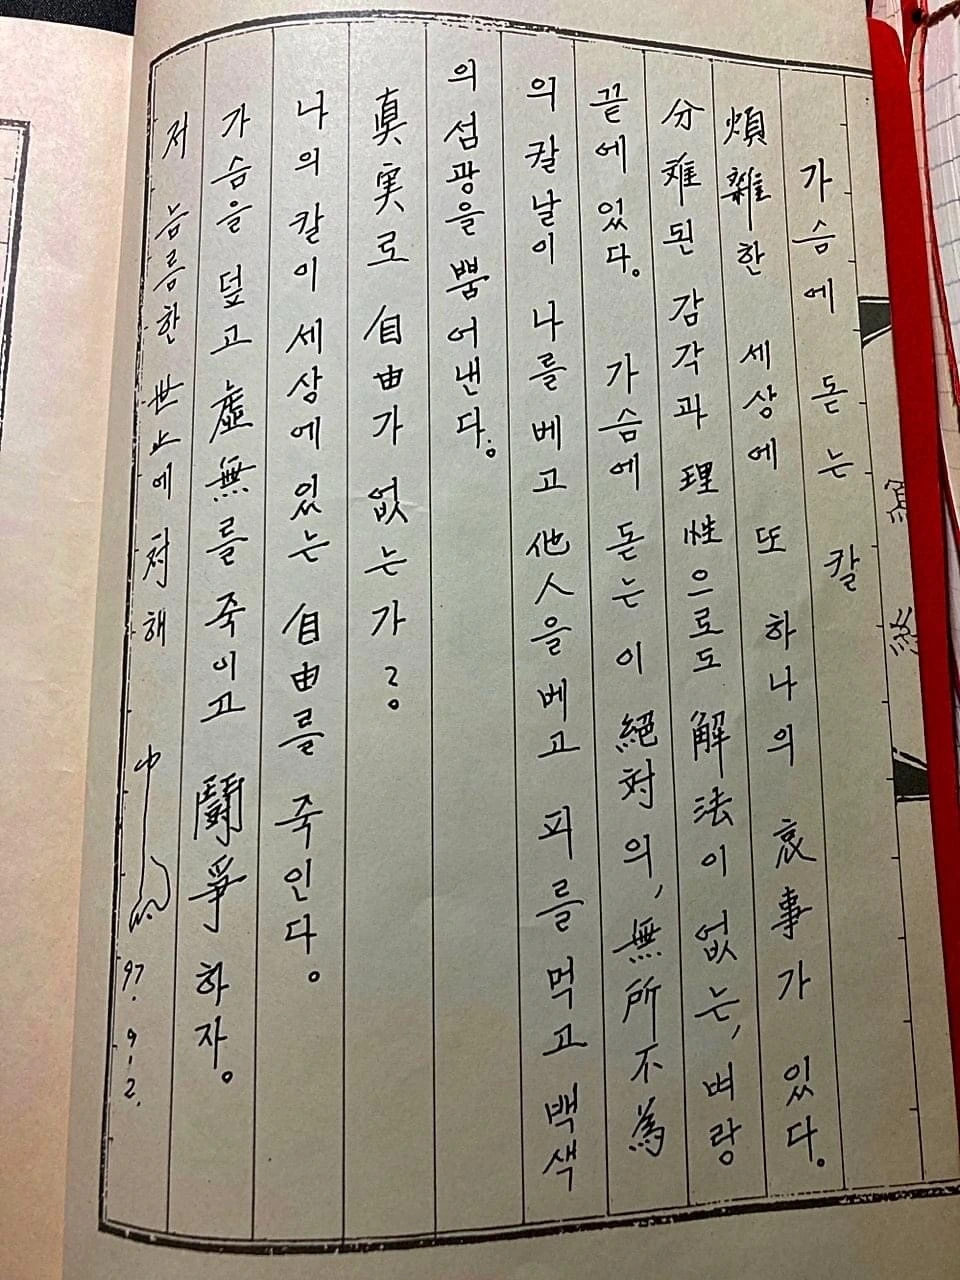 가슴에 돋는 칼
煩雜한 세상에 또 하나의 哀事가 있다.
分难된 감각과 理性으로도 解法이 없는, 벼랑
끝에 있다. 가슴에 돋는 이 絕対의, 無所不為
의 칼날이 나를 베고 他人을 베고 피를 먹고 백색
의 섬광을 뿜어낸다.
眞実로 自由가 없는가?
나의 칼이 세상에 있는 自由를 죽인다.
가슴을 덮고 虛無를 죽이고 鬪爭하자.
저 늠름한 世上에 対해 97. 9. 2.